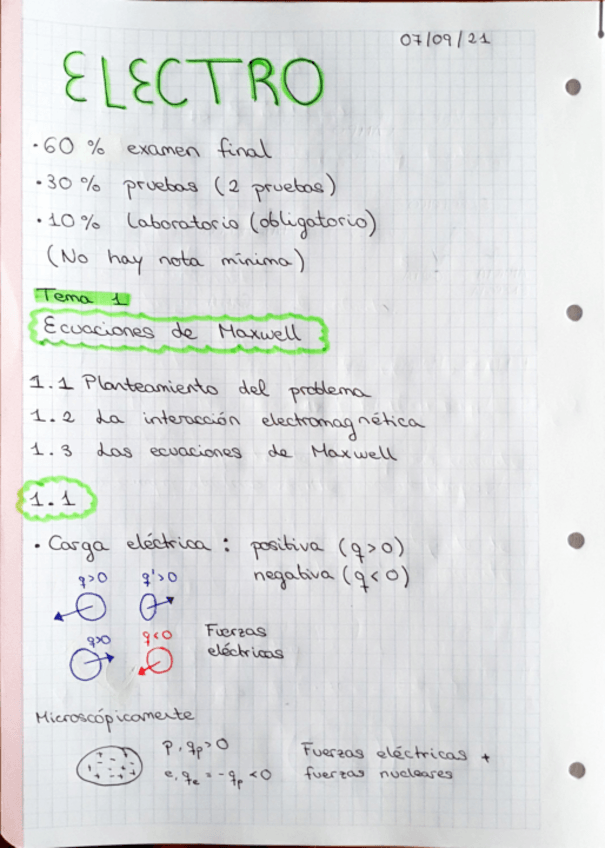 07/09/21
ELECTRO
· 60 % examen final
· 30 % pruebas (2 pruebas)
· 10 % Laboratorio (obligatorio)
(No hay nota mínima)
Tema 1
Ecuaciones de Maxwell
1.1 Planteamiento del problema
1.2 La interacción electromagnética
1.3 Las ecuaciones de Maxwell
1.1
· Carga eléctrica : positiva (q>0)
negativa (q<0)
q>0 q'>0
q>0 q<0 Fuerzas
eléctricas
Microscópicamente
p, qp>0 Fuerzas eléctricas +
e, qe = -qp <0 fuerzas nucleares